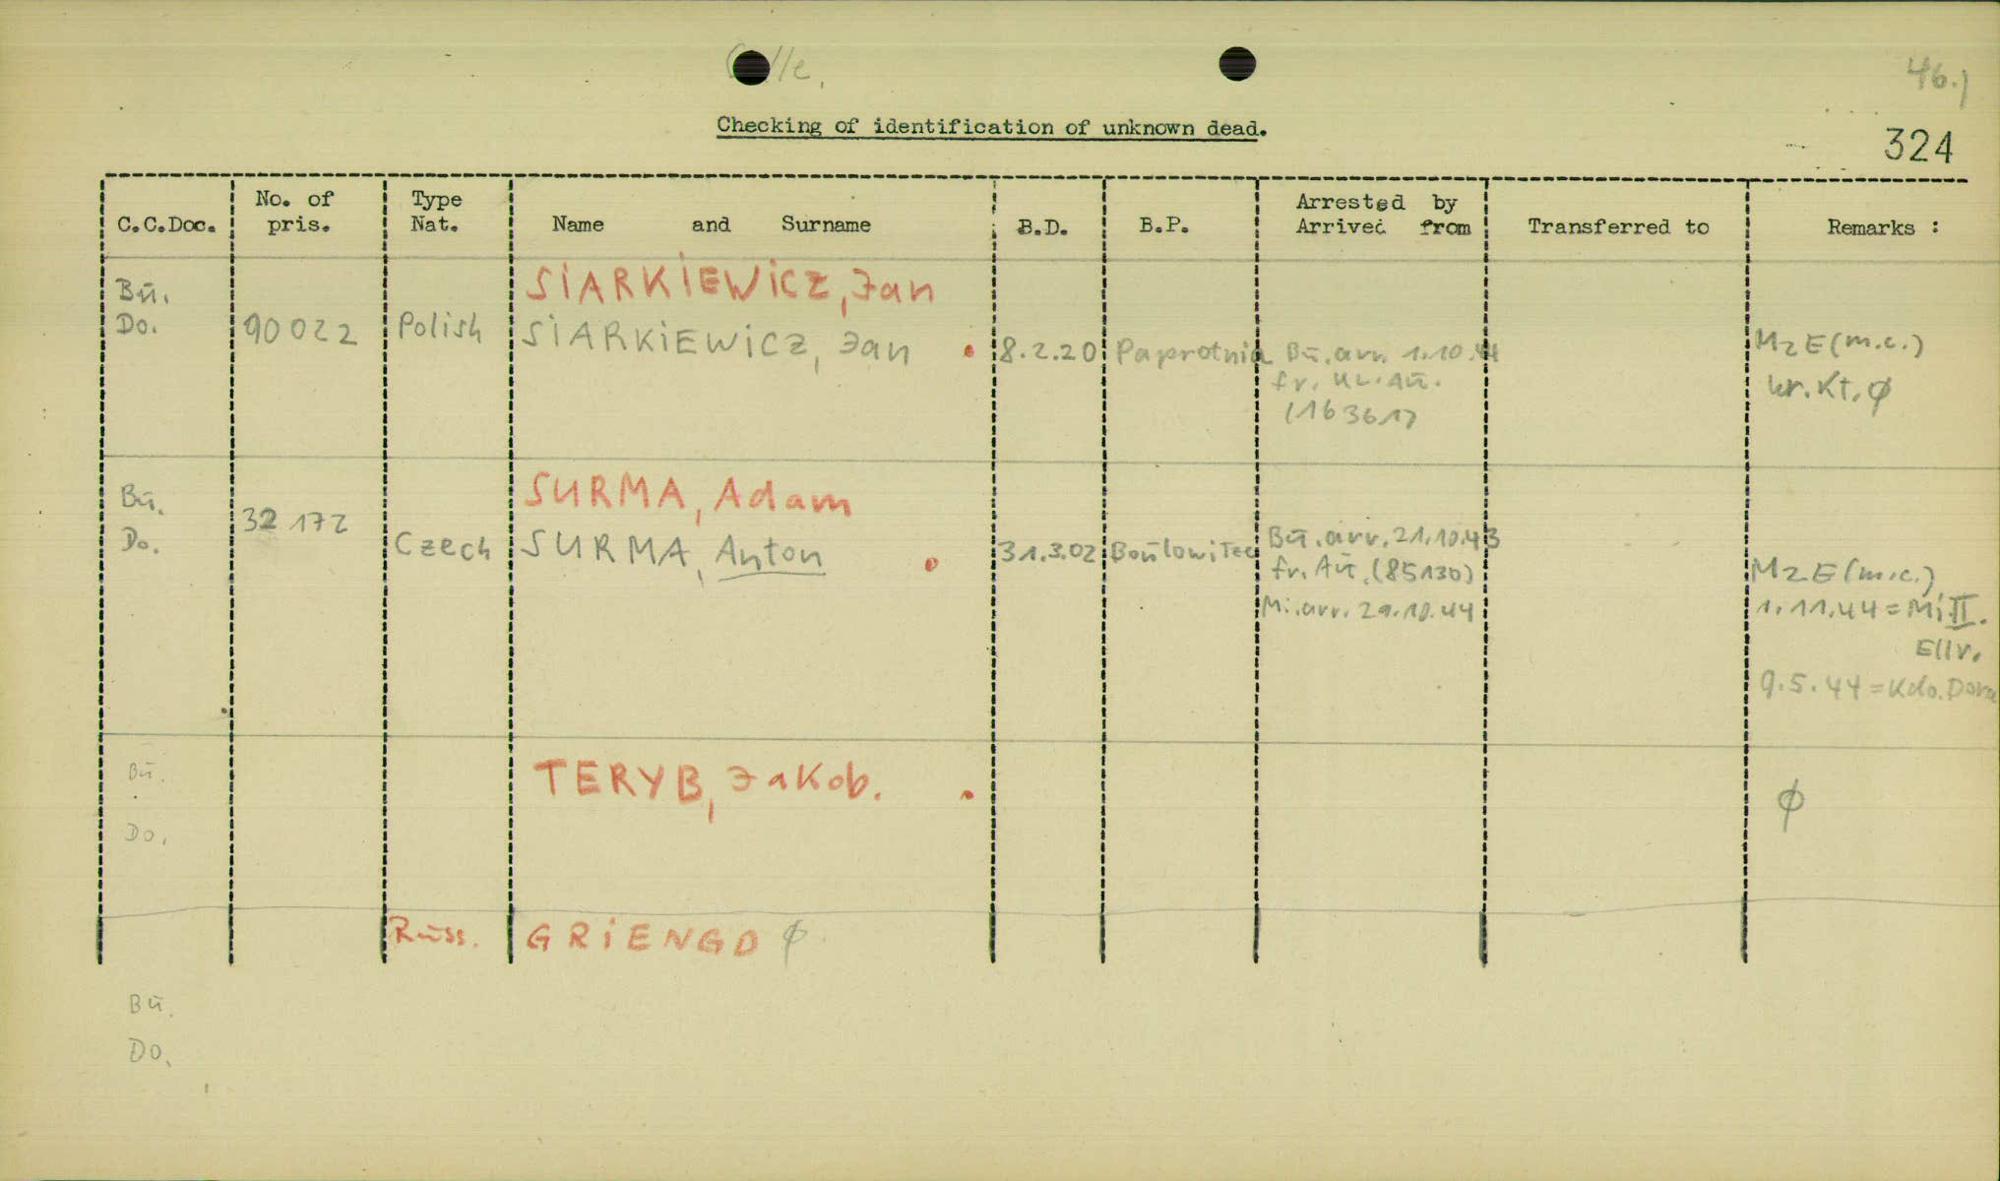 Celle.
46.)
Checking of identification of unknown dead.
324
C.C.Doc. No. of pris. Type Nat. Name and Surname B.D. B.P. Arrested by Arrived from Transferred to Remarks :
SiARKiEWiCZ, Jan
Bū.
Do. 90022 Polish SiARKiEWiCZ, Jan 8.2.20 Paprotnia Bū. arr. 1.10.44 MzE (m.c.)
fr. KL. Aū. kr. Kt. ø
(163611)
SURMA, Adam
Bū. 32 172
Do. Czech SURMA, Anton 31.3.02 Boūlowitec Bū. arr. 21.10.43
fr. Aū. (85130) MzE (m.c.)
Mi. arr. 29.10.44 1.11.44 = Mi II.
Ellr.
9.5.44 = Kdo. Dora
Bū. TERYB, Jakob. ø
Do.
Rūss. GRiENGO ø
Bū.
Do.